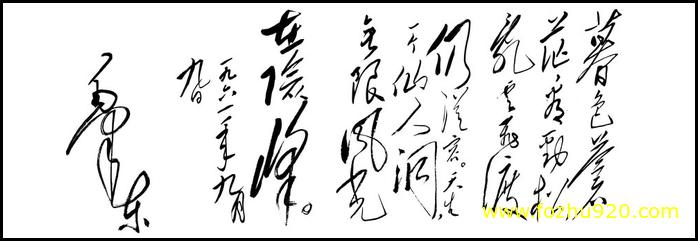 暮色蒼
茫看勁松
亂雲飛渡
仍從容。天生
一个仙人洞
无限風光
在險峰。
一九六一年九月
九日
毛澤東
www.fozhu920.com